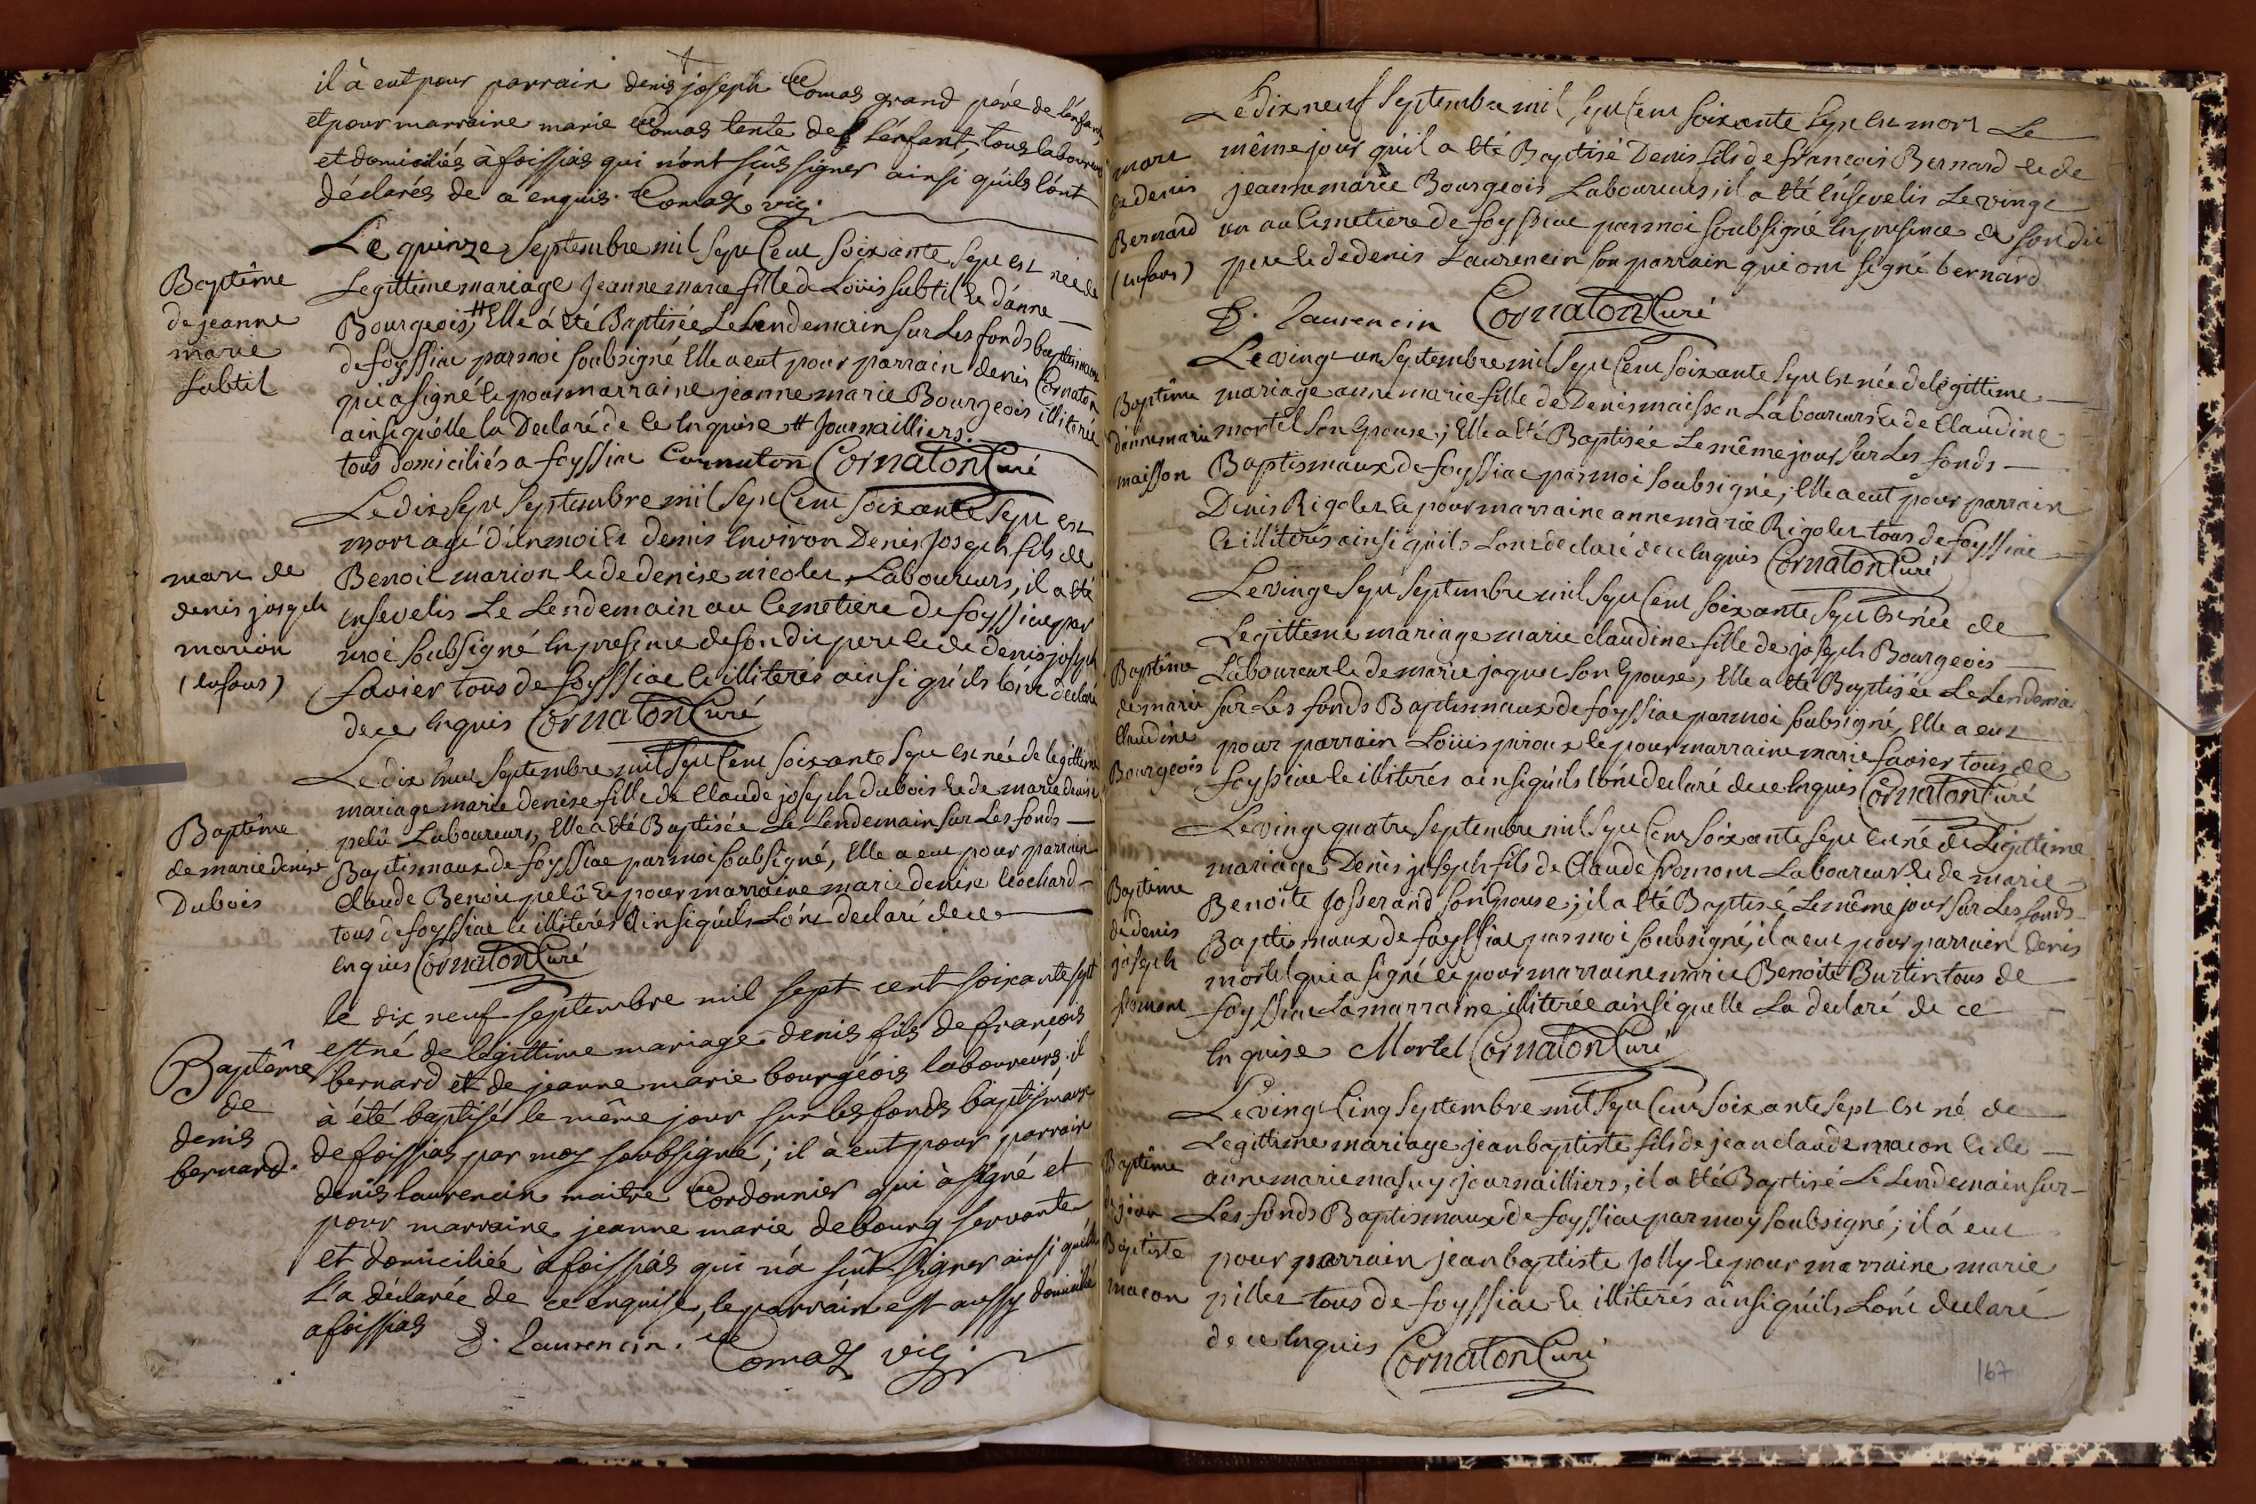 il à eut pour parrain denis joseph Comas grand pére de l'enfant,
et pour marraine marie Comas tente de l'enfant, tous laboureurs
et domiciliés à foissias qui n'ont sçûs signer ainsi qu'ils l'ont
déclarés de ce enquis. Comas vic.
Baptême
de jeanne
marie
subtil
Le quinze septembre mil sept Cent soixante sept est née de
Legittime mariage Jeanne marie fille de Loüis subtil et d'anne
Bourgeois,# Elle á été Baptisée Le Lendemain sur Les fonds baptismaux
de foyssiac par moi soubsigné Elle a eut pour parrain denis Cornaton
qui a signé et pour marraine jeanne marie Bourgeois illiterée
ainsi qu'elle la Declaré de Ce Enquise # Journailliers.
tous domiciliés a foyssiac Cornaton Cornaton Curé
mort de
denis joseph
marion
(enfans)
Le dix sept septembre mil sept Cent soixante sept est
mort agé d'un moi Et demis Environ Denis Joseph fils de
Benoit marion et de denise nicolet Laboureurs, il a été
Ensevelis Le Lendemain au Cemetiere de foyssiac par
moi soubsigné En presence de son dit pere et de denis joseph
favier tous de foyssiac et illiterés ainsi qu'ils l'ont declaré
de ce Enquis Cornaton Curé
Baptême
de marie denise
Dubois
Le dix neuf septembre mil sept Cent soixante sept est née de legittime
mariage marie denise fille de Claude joseph dubois et de marie denise
pelû Laboureurs, Elle a été Baptisée Le Lendemain sur Les fonds
Baptismaux de foyssiac par moi soubsigné, Elle a eut pour parrain
Claude Benoit pelû et pour marraine marie denise Cochard
tous de foyssiac et illiterés Ainsi qu'ils L'ont declaré de ce
Enquis Cornaton Curé
Baptême
de
denis
bernard.
le dix neuf septembre mil sept cent soixante sept
est né de legittime mariage denis fils de françois
bernard et de jeanne marie bourgéois laboureurs. il
à été baptisé le même jour sur les fonds baptismaux
de foissias par moy soubsigné; il à eut pour parrain
denis laurencin maitre Cordonnier qui à signé et
pour marraine jeanne marie debourg servante
et domiciliée à foissias qui n'a sçût signer ainsi qu'elle
l'a déclarée de ce enquise, le parrain est aussy domicilié
a foissias D. Laurencin. Comas vic.
mort
de denis
Bernard
(enfans)
Le dix neuf septembre mil sept Cent soixante sept Est mort Le
même jour qu'il a été Baptisé Denis fils de francois Bernard et de
jeanne marie Bourgeois Laboureurs, il a été Ensevelis Le vingt
un au Cemetiere de foyssiac par moi soubsigné En presence de son dit
pere et de denis Laurencin son parrain qui ont signé bernard
D. laurencin Cornaton Curé
Baptême
d'anne marie
maisson
Le vingt un septembre mil sept Cent soixante sept Est née de légittime
mariage anne marie fille de Denis maisson Laboureurs et de Claudine
mortel son Epouse; Elle a été Baptisée Le même jour sur Les fonds
Baptismaux de foyssiac par moi soubsigné; Elle a eut pour parrain
Denis Rigolet et pour marraine anne marie Rigolet tous de foyssiac
et illiterés ainsi qu'ils L'ont declaré de ce Enquis Cornaton Curé
Baptême
de marie
Claudine
Bourgeois
Le vingt sept septembre mil sept Cent soixante sept Est née de
Legittime mariage marie claudine fille de joseph Bourgeois
Laboureur et de marie jaquet son Epouse, Elle a été Baptisée Le Lendemain
sur Les fonds Baptismaux de foyssiac par moi soubsigné, Elle a eut
pour parrain Loüis piroux et pour marraine marie favier tous de
foyssiac et illiterés ainsi qu'ils l'ont declaré de ce Enquis Cornaton Curé
Baptême
de denis
joseph
fromont
Le vingt quatre septembre mil sept Cent soixante sept Est né de Légittime
mariage Denis joseph fils de Claude fromont Laboureur et de marie
Benoite Josserand son Epouse; il a été Baptisé Le même jour sur Les fonds
Baptismaux de foyssiac par moi soubsigné, il a eut pour parrain denis
mortel qui a signé et pour marraine marie Benoite Burtin tous de
foyssiac La marraine illiterée ainsi quelle La declaré de ce
Enquise Mortel Cornaton Curé
Baptême
de jean
Baptiste
macon
Le vingt Cinq septembre mil sept Cent soixante sept Est né de
Legittime mariage jean baptiste fils de jean claude macon et de
anne marie masuy journailliers, il a été Baptisé Le Lendemain sur
Les fonds Baptismaux de foyssiac par moy soubsigné; il á eut
pour parrain jean baptiste Jolly et pour marraine marie
pillet tous de foyssiac et illiterés ainsi qu'ils L'ont declaré
de ce Enquis Cornaton Curé
167